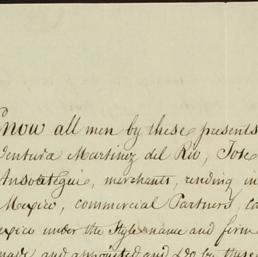 Know all men by these presents
Ventura Martinez del Rio, Jose
Ansoategui, merchants, residing in
Mexico, commercial Partners, ca
exico under the style name and firm
made and appointed and do by these